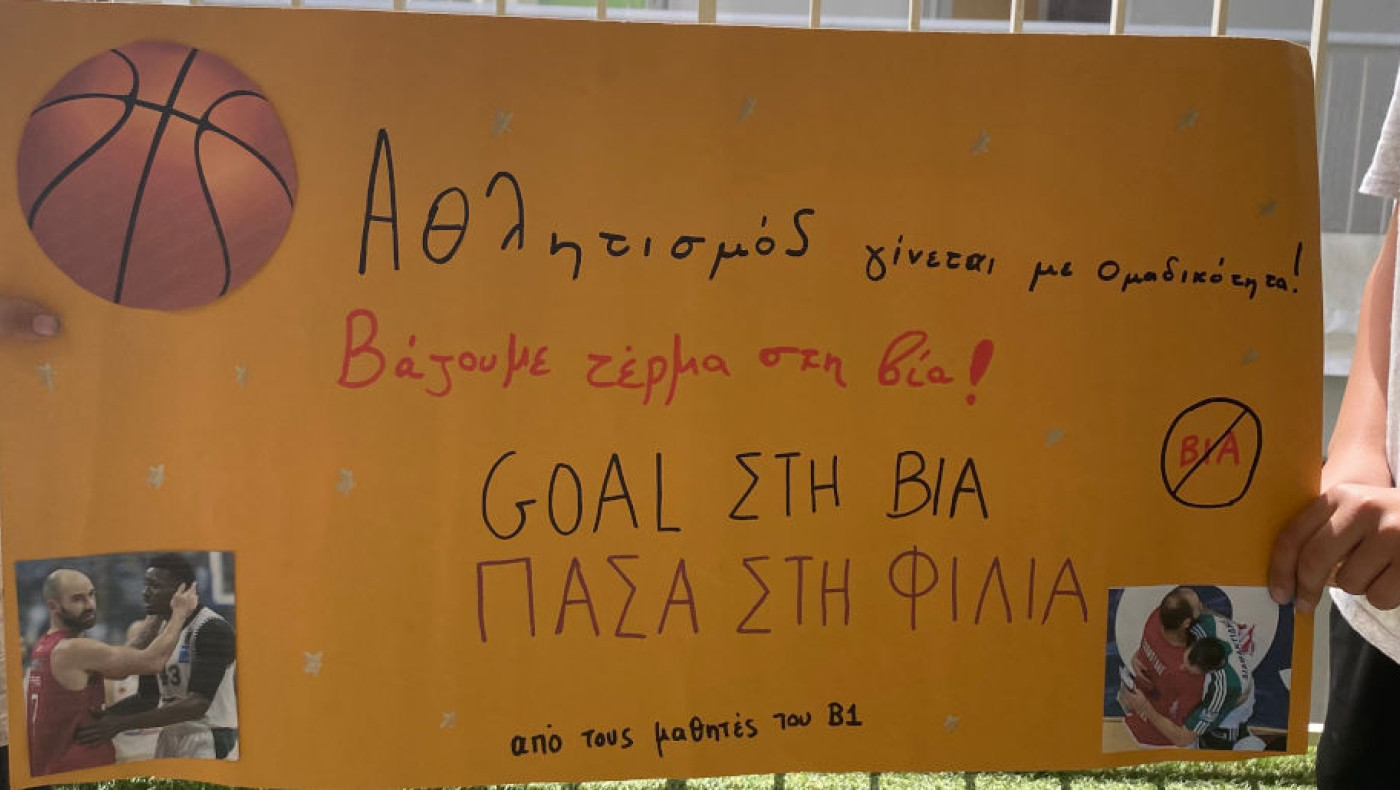 Αθλητισμός γίνεται με ομαδικότητα!
Βάζουμε τέρμα στη βία!
ΒΙΑ
GOAL ΣΤΗ ΒΙΑ
ΠΑΣΑ ΣΤΗ ΦΙΛΙΑ
43
7
από τους μαθητές του Β1